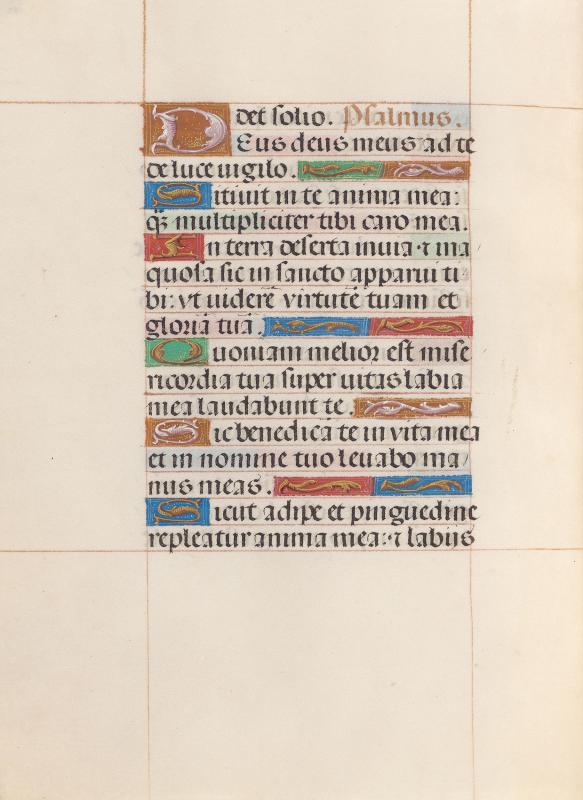 det solio. Psalmus.
Deus deus meus ad te
de luce uigilo.
Sitiuit in te anima mea:
q̃ multipliciter tibi caro mea.
In terra deserta inuia ⁊ ina
quosa sic in sancto apparui ti
bi: vt uiderē virtutē tuam et
gloriā tuā
Quoniam melior est mise
ricordia tua super uitas labia
mea laudabunt te.
Sic benedicā te in vita mea
et in nomine tuo leuabo ma
nus meas.
Sicut adipe et pinguedine
repleatur anima mea: ⁊ labijs